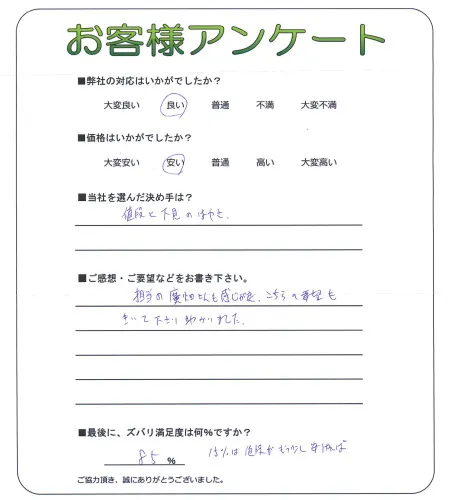 お客様アンケート
■弊社の対応はいかがでしたか？
大変良い 良い 普通 不満 大変不満
■価格はいかがでしたか？
大変安い 安い 普通 高い 大変高い
■当社を選んだ決め手は？
値段と下見のはやさ。
■ご感想・ご要望などをお書き下さい。
担当の さんも感じが良く、こちらの希望も
きいて下さり助かりました。
■最後に、ズバリ満足度は何%ですか？
85 % 15%は値段がもう少し安ければ
ご協力頂き、誠にありがとうございました。